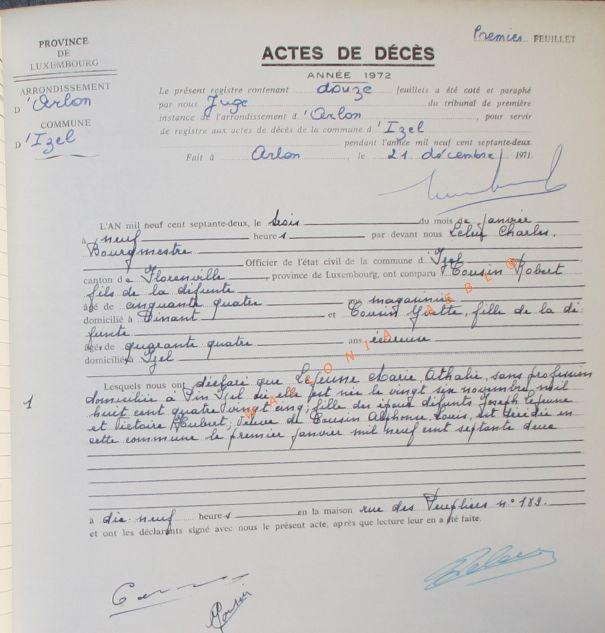 Premier FEUILLET
PROVINCE
DE
LUXEMBOURG
ARRONDISSEMENT
D'Arlon
COMMUNE
D'Izel
ACTES DE DÉCÈS
ANNÉE 1972
Le présent registre contenant douze feuillets a été coté et paraphé
par nous Juge du tribunal de première
instance de l'arrondissement d'Arlon, pour servir
de registre aux actes de décès de la commune d'Izel
pendant l'année mil neuf cent septante-deux.
Fait à Arlon, le 21 décembre 1971.
L'AN mil neuf cent septante-deux, le trois du mois de janvier
à neuf heures par devant nous Charles,
Bourgmestre
Officier de l'état civil de la commune d'Izel
canton de Florenville, province de Luxembourg, ont comparu Cousin Robert
fils de la défunte
âgé de cinquante quatre ans magasinier
domicilié à Dinant et Cousin Yvette, fille de la dé-
funte
âgée de quarante quatre ans
domicilié à Izel
Lesquels nous ont déclaré que Lejeune Marie, Athalie, sans profession
1
domiciliée à Pin Izel où elle est née le vingt six novembre mil
huit cent quatre vingt cinq; fille des époux défunts Joseph Lejeune
et Victoire Hubert; veuve de Cousin Alphonse, Louis, est décédée en
cette commune le premier janvier mil neuf cent septante deux
à dix neuf heures en la maison rue des n° 189.
et ont les déclarants signé avec nous le présent acte, après que lecture leur en a été faite.
WALLONIA ASBL ©
Cousin